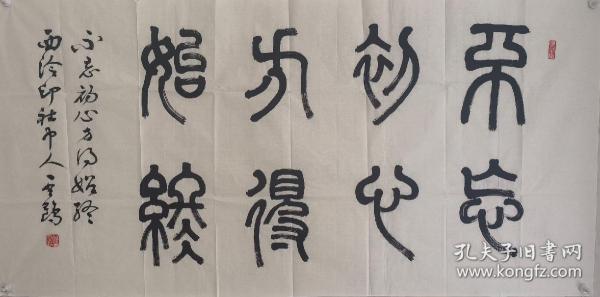 不忘
初心
方得
始终
不忘初心方得始终
西泠印社中人
孔夫子旧书网
www.kongfz.com